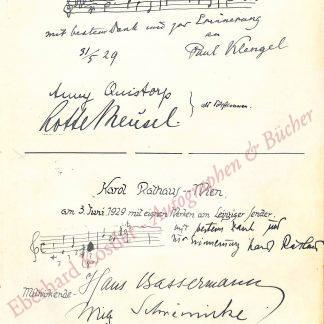 mit bestem Dank und zur Erinnerung
an
31/5 29
Paul Klengel
Anny Quistorp
Lotte Meusel
als Mitwirkende
Karol Rathaus - Wien
am 3. Juni 1929 mit eignen Werken am Leipziger Sender.
mit bestem Dank und
zur Erinnerung Karol Rathaus
Mitwirkende-
Hans Bassermann
Eberhard Köstler - Autographen & Bücher